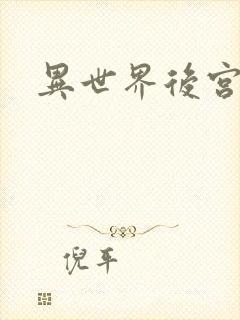 異世界後宮
倪平